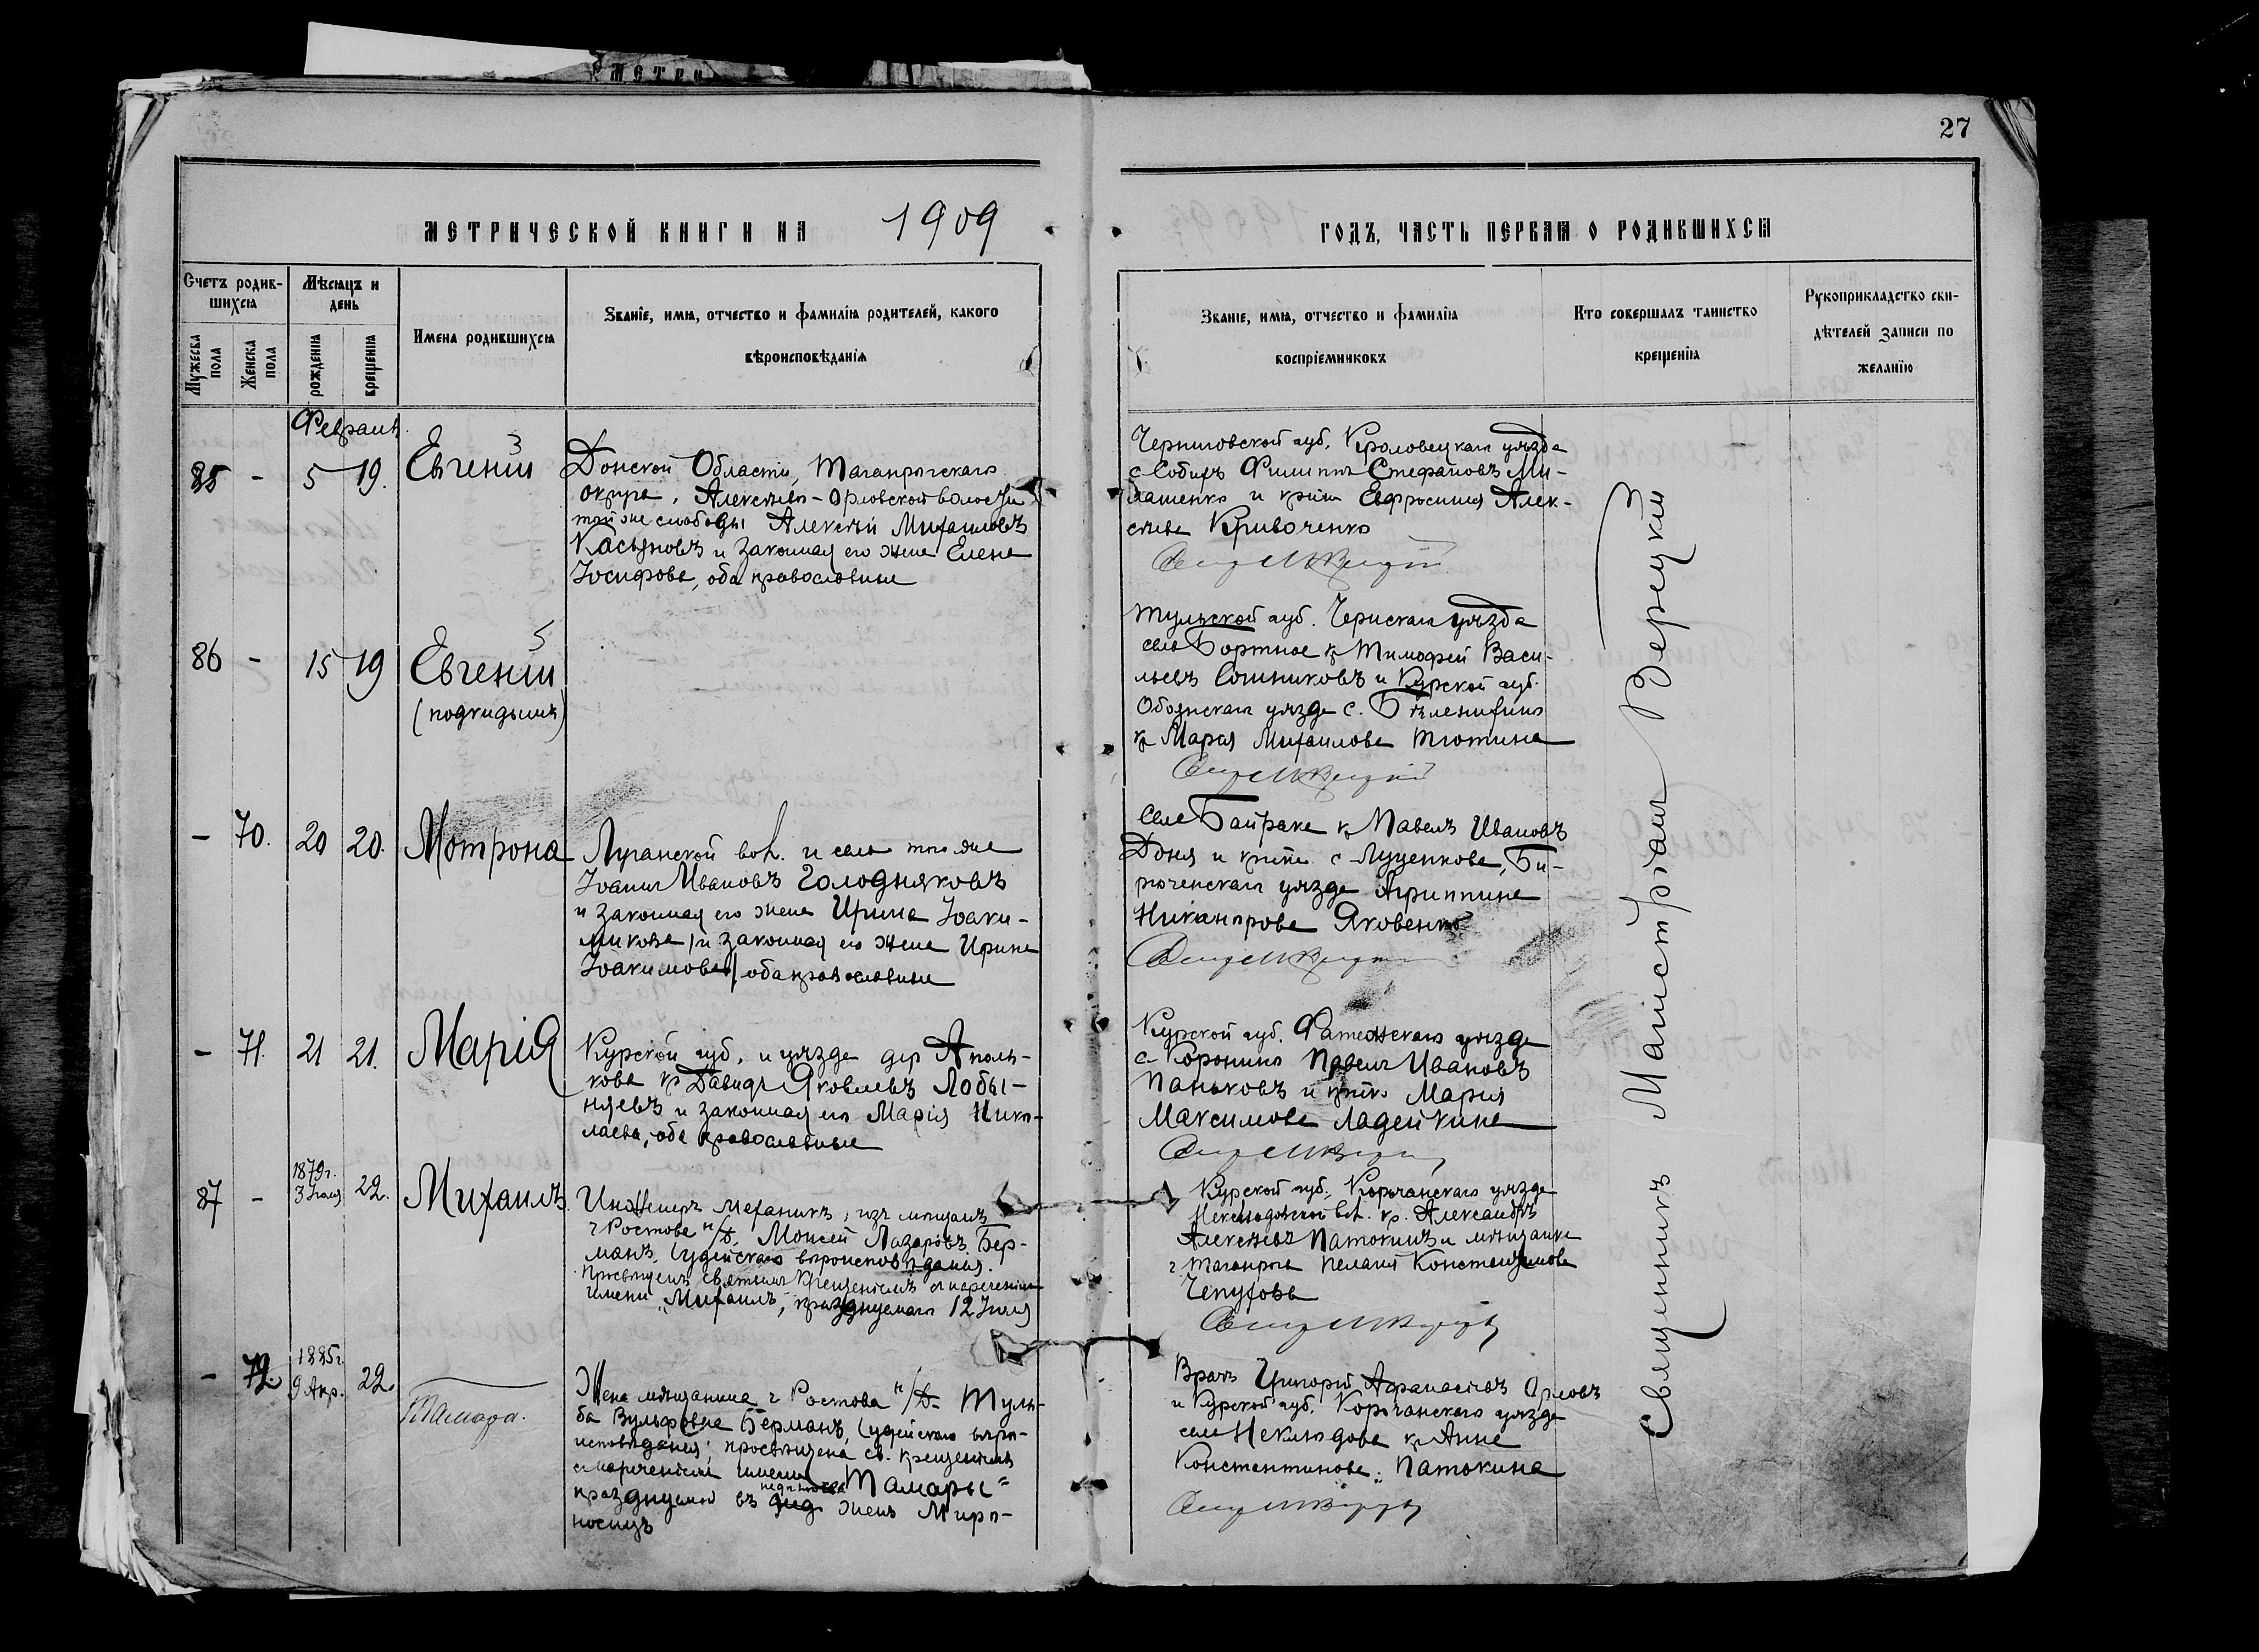 МЕТРИ
27
МЕТРИЧЕСКОЙ КНИГИ НА 1909
ГОДЪ, ЧАСТЬ ПЕРВАЯ О РОДИВШИХСЯ
Счетъ родив-
шихся
Мужеска
пола
Женска
пола
Мѣсяцъ и
день
рожденія
крещенія
Имена родившихся
Званіе, имя, отчество и фамилія родителей, какого
вѣроисповѣданія
Званіе, имя, отчество и фамилія
воспріемниковъ
Кто совершалъ таинство
крещенія
Рукоприкладство сви-
дѣтелей записи по
желанію
Февраля
85 - 5 19. Евгеній 3
Донской Области, Таганрогскаго
округа, Алексѣево-Орловской волости
той же слободы Алексѣй Михаиловъ
Касьяновъ и законная его жена Елена
Іосифова, оба православные
Черниговской губ. Кроловецкаго уѣзда
с. Собичъ Филиппъ Стефановъ Ми-
лашенко и Евфросинія Алек-
сѣева Кривоченко
86 - 15 19 Евгеній 5
(подкидышъ)
Тульской губ. Чернскаго уѣзда
село Бортное кр Тимофей Васи-
льевъ Сошниковъ и Курской губ.
Обоянскаго уѣзда с.
кр Марія Михаилова Тютина
- 70. 20 20. Мотрона
Луганской вол. и села того же
Іоаннъ Ивановъ Голодняковъ
и законная его жена Ирина Іоаки-
/и законная его жена Ирина
Іоакимова/, оба православные
Села Байрака кр Павелъ Ивановъ
Доня и с. Луценкова, Би-
рюченскаго уѣзда Агриппина
Никанорова Яковенко
- 71. 21 21. Марія
Курской губ. и уѣзда дер Аполь-
кова кр Давидъ Яковлевъ Лобы-
няевъ и законная его Марія Нико-
лаева, оба православные
Курской губ. Фатежскаго уѣзда
с. Воронино Павелъ Ивановъ
Паньковъ и Марія
Максимова Ладейкина
87 - 1879г. 3 Іюля 22. Михаилъ
Инженеръ механикъ, изъ мѣщанъ
г Ростова н/Д. Моисей Лазаровъ Бер-
манъ, Іудейскаго вѣроисповѣданія.
Просвѣщенъ святымъ Крещеніемъ съ нареченіемъ
имени „Михаилъ“, празднуемаго 12 Іюля
Курской губ., Корочанскаго уѣзда
Неклюдовской вол. кр. Александръ
Алексѣевъ Патокинъ и мѣщанка
г. Таганрога Пелагія Константинова
Чепухова
- 72. 1885г. 9 Апр. 22. Тамара.
Жена мѣщанина г Ростова н/Д. Туль-
ба Вульфовна Берманъ, Іудейскаго вѣро-
исповѣданія; просвѣщена св. крещеніемъ
съ нареченіемъ имени „Тамары“
празднуемой въ недѣлю женъ Миро-
носицъ
Врачъ Григорій Афанасіевъ Орловъ
и Курской губ. Корочанскаго уѣзда
села Неклюдова кр Анна
Константинова Патокина
Священникъ Магистріанъ Верецкій